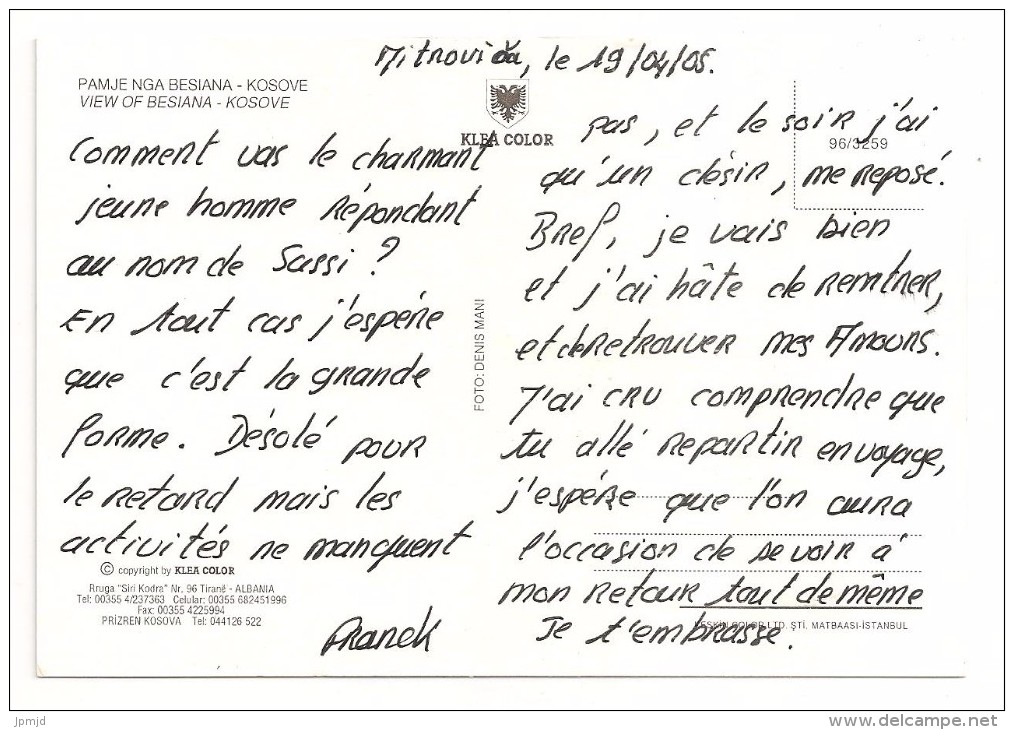 Mitrovica, le 19/04/05.
PAMJE NGA BESIANA - KOSOVE
VIEW OF BESIANA - KOSOVE
KLEA COLOR
96/3259
Comment vas le charmant
jeune homme répondant
au nom de Sassi ?
En tout cas j'espére
que c'est la grande
forme. Désolé pour
le retard mais les
activités ne manquent
pas, et le soir j'ai
qu'un désir, me reposé.
Bref, je vais bien
et j'ai hâte de rentrer,
et de retrouver mes Amours.
J'ai cru comprendre que
tu allé repartir en voyage,
j'espére que l'on aura
l'occasion de se voir à
mon retour tout de même
Je t'embrasse.
Franck
FOTO: DENIS MANI
© copyright by KLEA COLOR
Rruga "Siri Kodra" Nr. 96 Tiranë - ALBANIA
Tel: 00355 4/237363 Celular: 00355 682451996
Fax: 00355 4225994
PRIZREN KOSOVA Tel: 044126 522
KESKIN COLOR LTD. ŞTİ. MATBAASI-İSTANBUL
jpmjd
www.delcampe.net